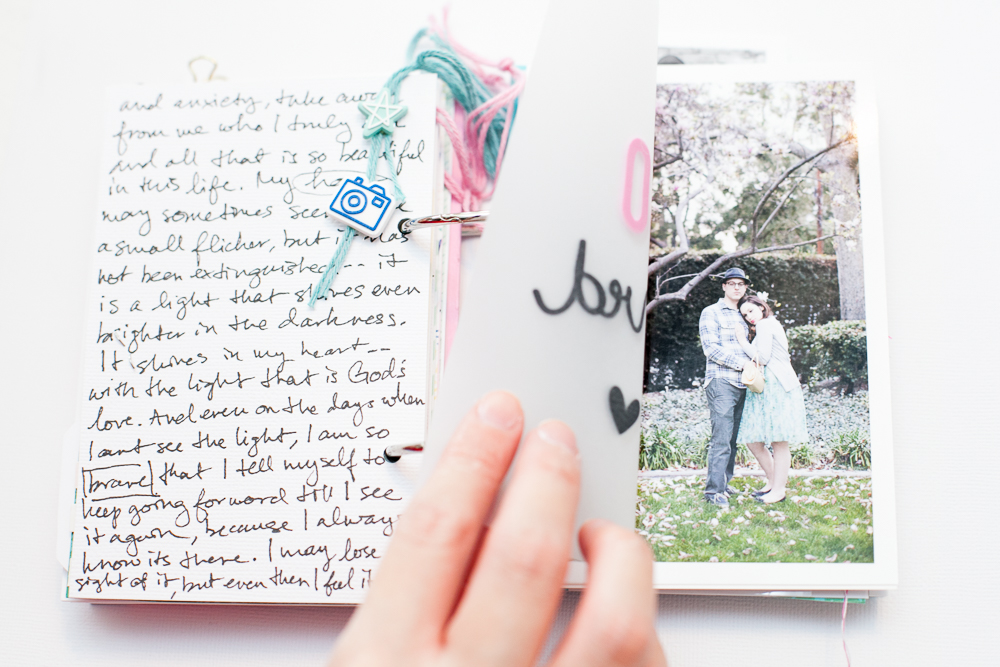 and anxiety, take away
from me who I truly
and all that is so beautiful
in this life. My
may sometimes see
a small flicker, but it has
not been extinguished -- it
is a light that shines even
brighter in the darkness.
It shines in my heart --
with the light that is God's
love. And even on the days when
I cant see the light, I am so
brave that I tell myself to
keep going forward till I see
it again, because I always
know its there. I may lose
sight of it, but even then I feel it